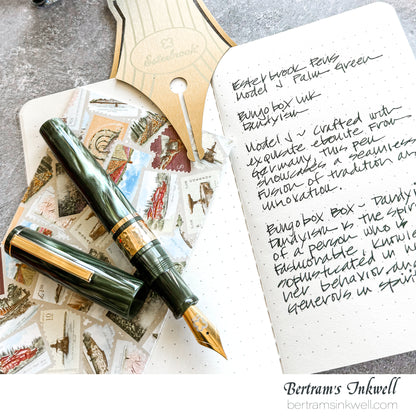 Esterbrook
Esterbrook Pens
Model J Palm Green
Bungobox Ink
Dandyism
Model J - Crafted with
exquisite ebonite from
Germany, this pen
showcases a seamless
fusion of tradition an
innovation.
Bungo box Box - Dandy
Dandyism is the spiri
of a person who is
fashionable, knowle
sophisticated in h
her behavior and
generous in spiri
Bertram's Inkwell
bertramsinkwell.com